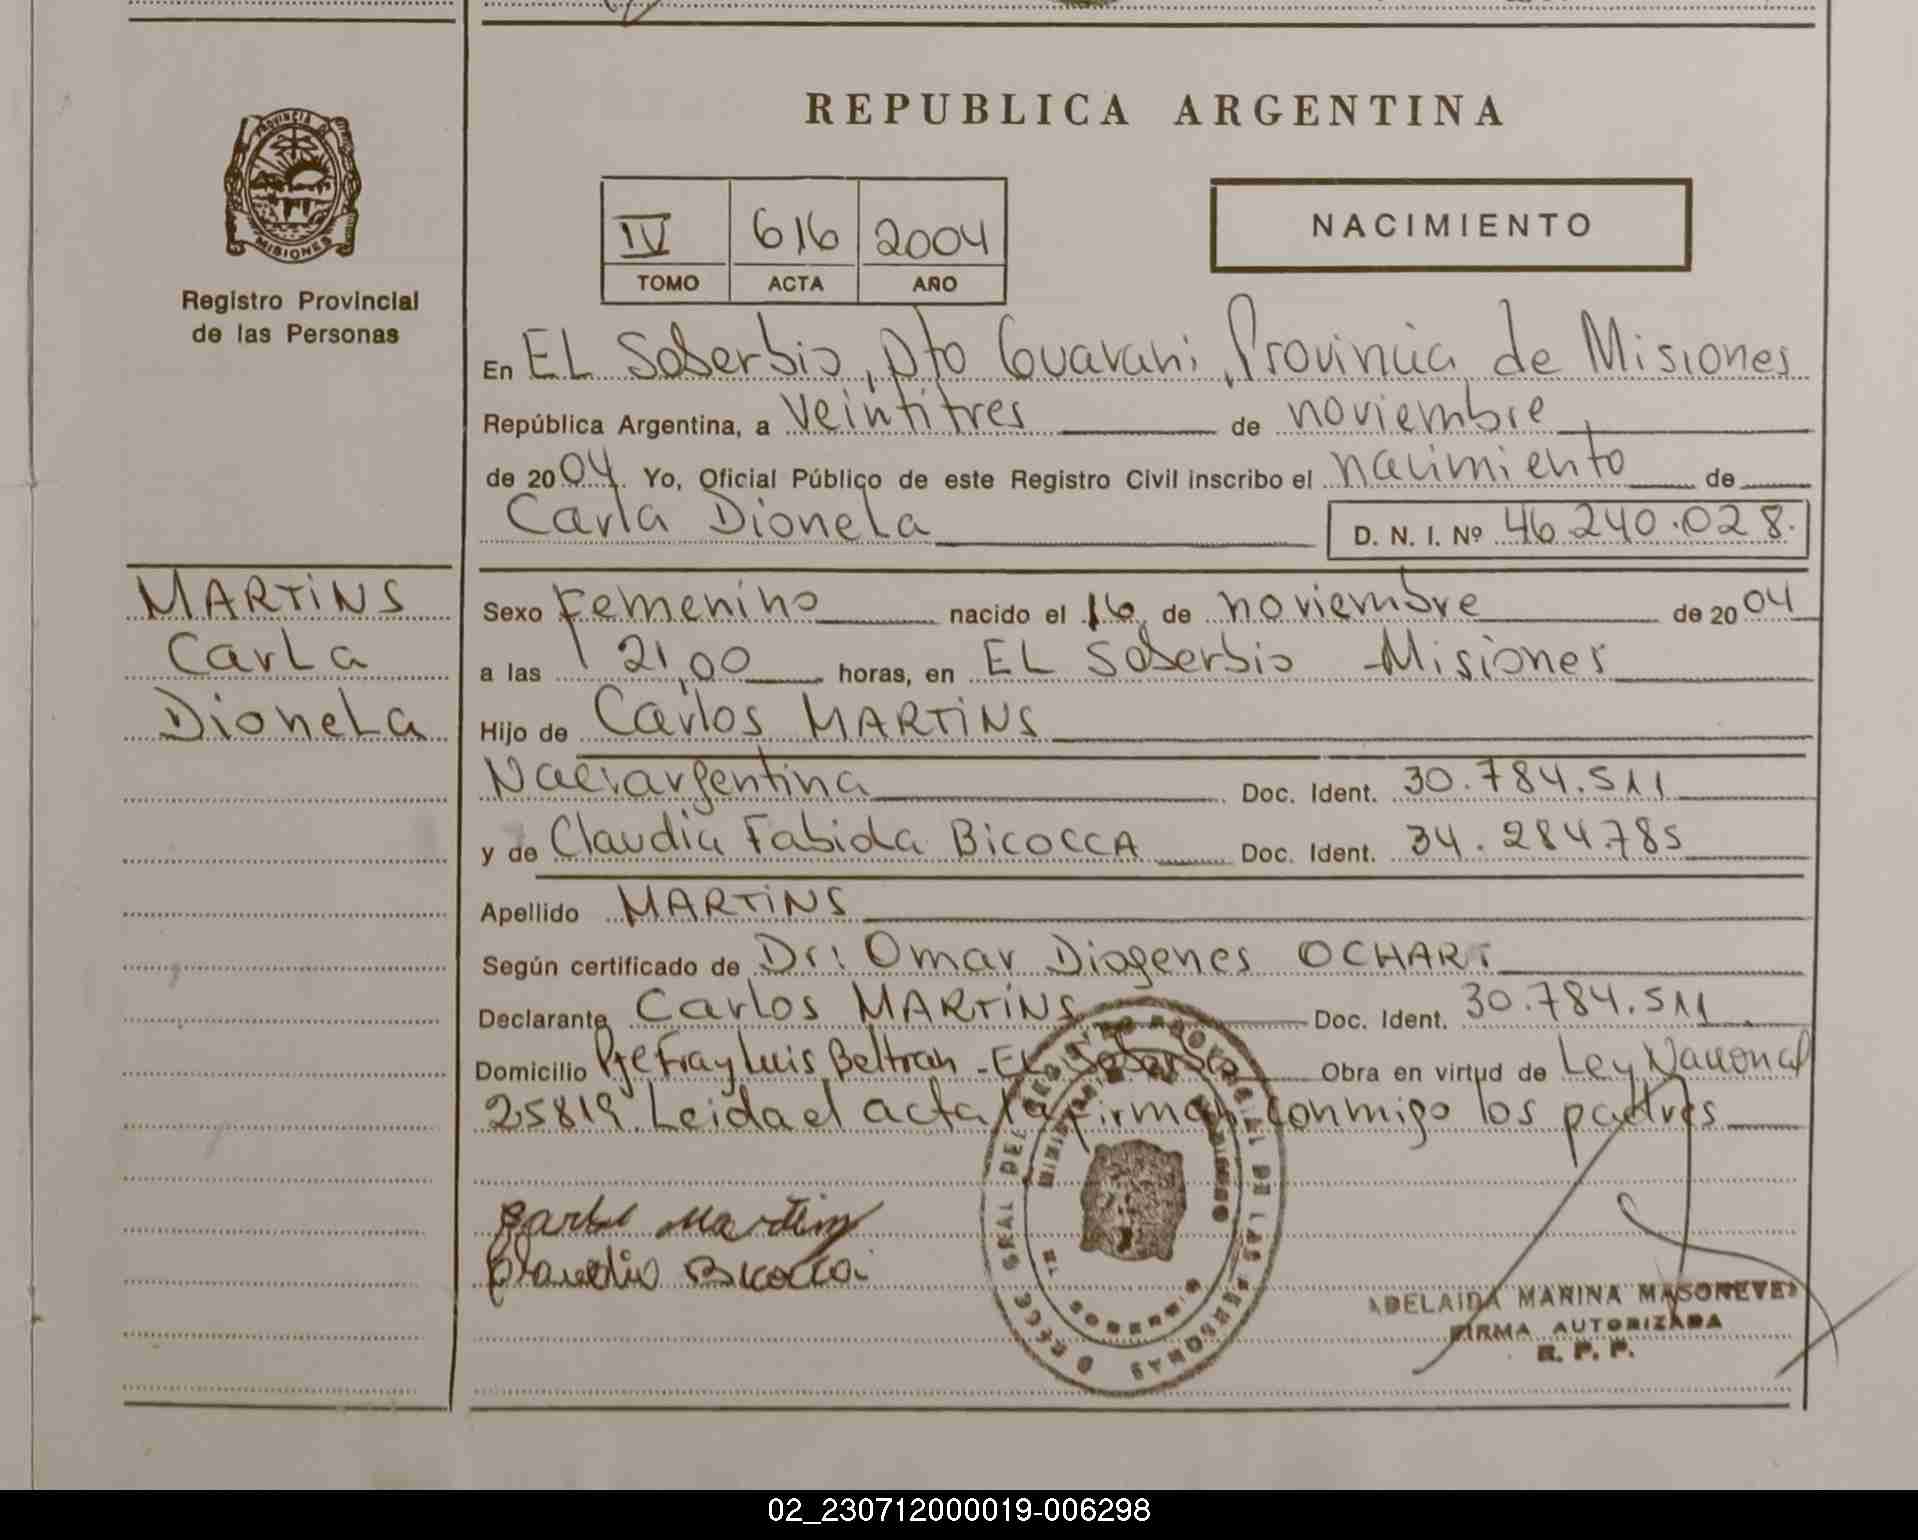 REPUBLICA ARGENTINA
PROVINCIA DE
MISIONES
Registro Provincial
de las Personas
IV 616 2004
TOMO ACTA AÑO
NACIMIENTO
En EL Soberbio, Dto Guarani, Provincia de Misiones
República Argentina, a veintitres de noviembre
de 2004. Yo, Oficial Público de este Registro Civil inscribo el nacimiento de
Carla Dionela D. N. I. Nº 46.240.028.
MARTINS
Carla
Dionela
Sexo Femenino nacido el 16 de noviembre de 2004
a las 21,00 horas, en EL Soberbio - Misiones
Hijo de Carlos MARTINS
Nac: argentina Doc. Ident. 30.784.511
y de Claudia Fabiola BICOCCA Doc. Ident. 34.284.785
Apellido MARTINS
Según certificado de Dr: Omar Diogenes OCHART
Declarante Carlos MARTINS Doc. Ident. 30.784.511
Domicilio Pje Fray Luis Beltran - EL Soberbio Obra en virtud de Ley Nacional
25819. Leida el acta la firman conmigo los padres
Carlos Martins
Claudia Bicocca
ADELAIDA MARINA
FIRMA AUTORIZADA
R. P. P.
02_230712000019-006298